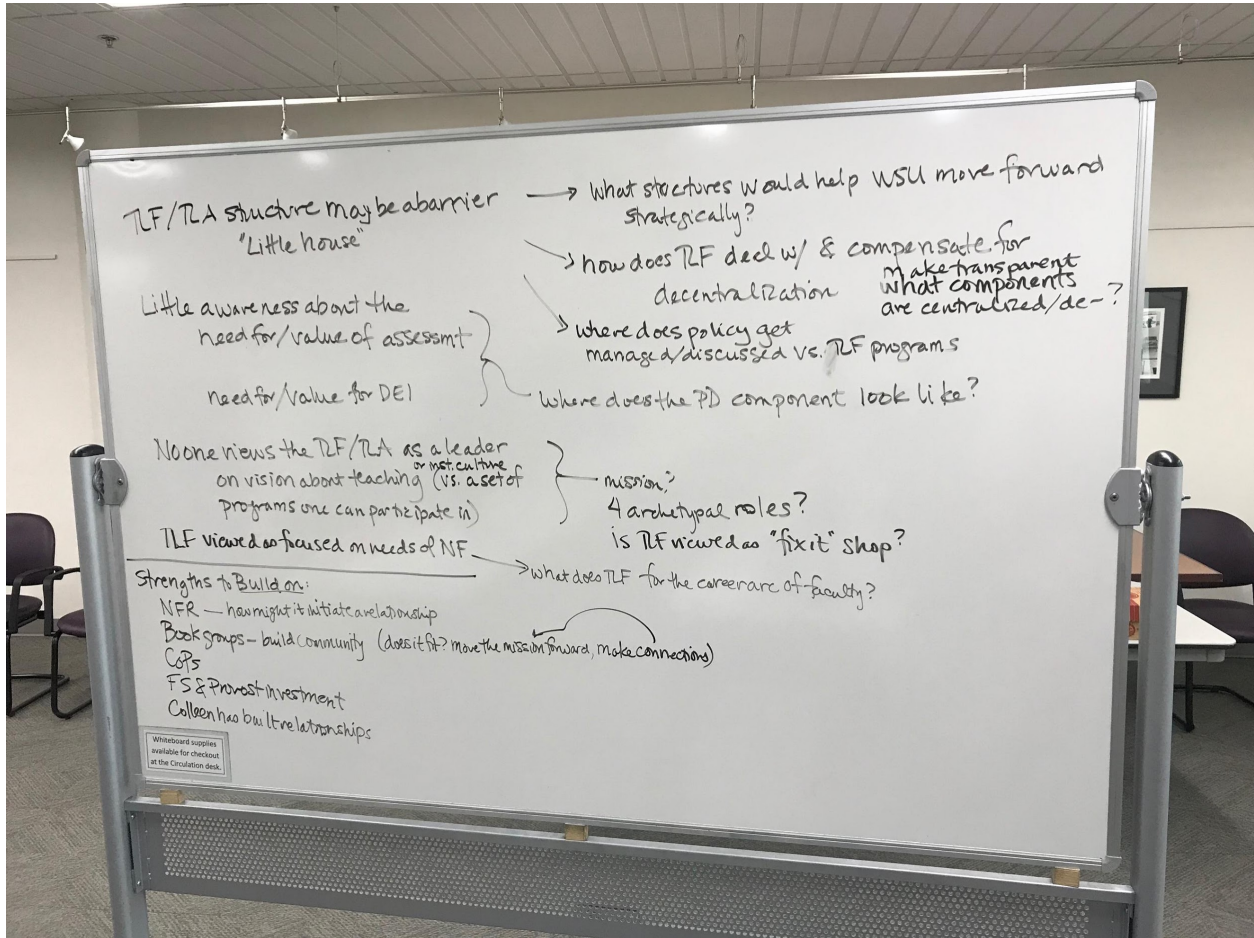 TLF/TLA structure may be a barrier
"Little house"
→ What structures would help WSU move forward
strategically?
→ how does TLF deal w/ & compensate for
decentralization
make transparent
what components
are centralized/de-?
→ where does policy get
managed/discussed vs. TLF programs
Little awareness about the
need for/value of assessmt
need for/value for DEI
Where does the PD component look like?
No one views the TLF/TLA as a leader
on vision about teaching or inst. culture (vs. a set of
programs one can participate in)
mission?
4 archetypal roles?
is TLF viewed as "fixit" shop?
TLF viewed as focused on needs of NF
→ what does TLF for the career arc of faculty?
Strengths to Build on:
NFR — how might it initiate a relationship
Book groups – build community (does it fit? move the mission forward, make connections)
CoPs
FS & Provost investment
Colleen has built relationships
Whiteboard supplies
available for checkout
at the Circulation desk.